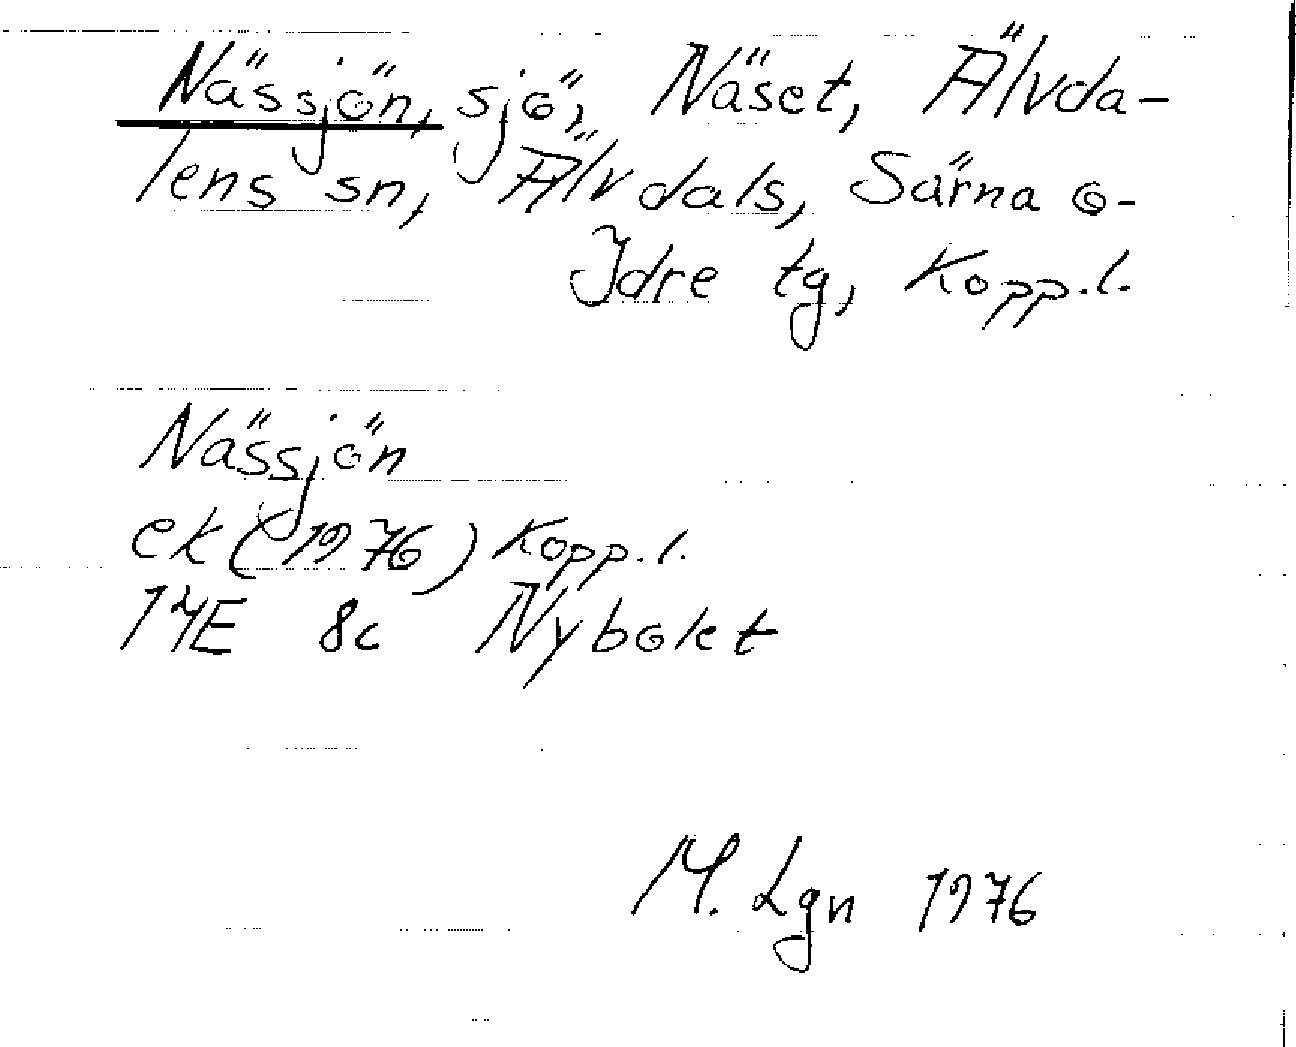 Nässjön, sjö, Näset, Älvda-
lens sn, Älvdals, Särna o-
Idre tg, Kopp.l.
Nässjön
ek (1976) Kopp.l.
14E 8c Nybolet
M. Lgn 1976